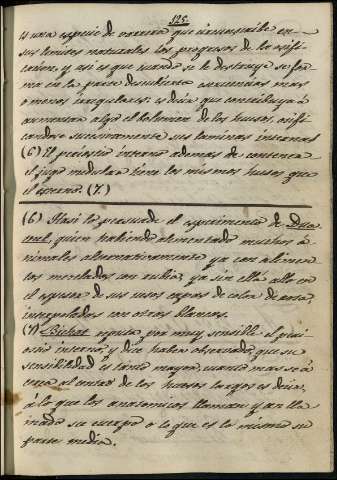 125.
es una especie de barrera que circunscribe en
sus limites naturales los progresos de la osifi-
cacion, y asi es que cuando se le destruye se for-
ma en la parte descubierta concreciones mas
o menos irregulares: es decir que contribuye á
aumentar algo el bolumen de los huesos, osifi-
candose sucesivamente sus laminas internas
(6) El periostio interno ademas de contener
el jugo medular tiene los mismos husos que
el externo. (7.)
(6) Hasi lo persuade el experimento de Du
quien habiendo alimentado muchos á
nimales alternativamente ya con alimen
tos mezclados con rubia, ya sin ella alló en
el espesor de sus usos capas de color de rosa,
interpoladas con otras blancas.
(7) Bichat reputa por muy sensible el peri
ostio interno, y dice haber observado, que su
sensibilidad es tanto mayor, cuanto mas se á
cerca al centro de los huesos largos es decir,
á lo que los anatomicos llaman y an lla
mado su cuerpo o lo que es lo mismo su
parte media.